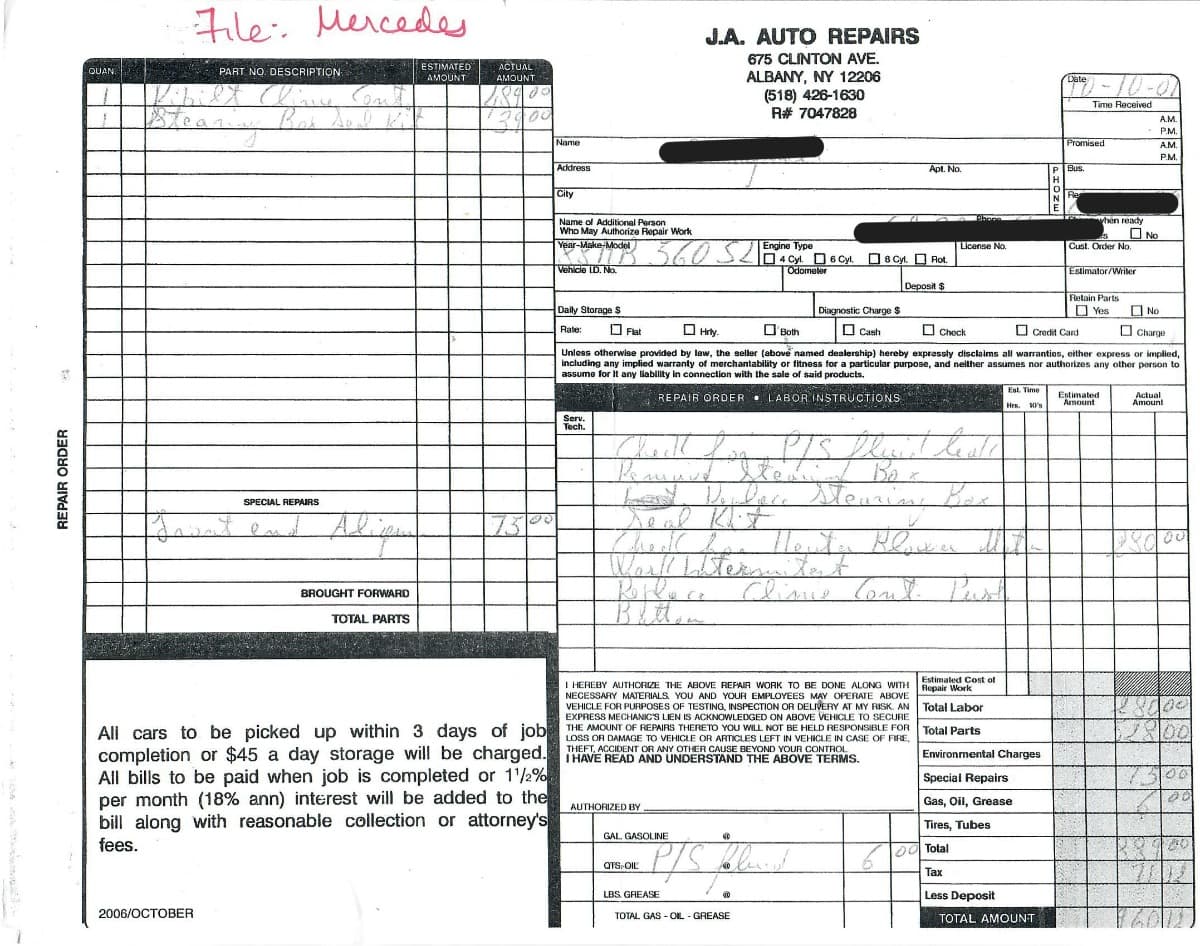 File: Mercedes
J.A. AUTO REPAIRS
675 CLINTON AVE.
ALBANY, NY 12206
(518) 426-1630
R# 7047828
QUAN. PART NO. DESCRIPTION ESTIMATED AMOUNT ACTUAL AMOUNT
1 Clime Cont 489 00
1 Stearing Box Seal Kit 39 00
SPECIAL REPAIRS
Front end Align 75 00
BROUGHT FORWARD
TOTAL PARTS
REPAIR ORDER
All cars to be picked up within 3 days of job
completion or $45 a day storage will be charged.
All bills to be paid when job is completed or 1 1/2%
per month (18% ann) interest will be added to the
bill along with reasonable collection or attorney's
fees.
2006/OCTOBER
Date 10-10-07
Time Received
A.M.
P.M.
Name
Promised A.M.
P.M.
Address Apt. No. PHONE Bus.
City
Name of Additional Person
Who May Authorize Repair Work
Phone when ready
No
Year-Make-Model 560 SL Engine Type License No. Cust. Order No.
4 Cyl. 6 Cyl. 8 Cyl. Rot.
Vehicle I.D. No. Odometer Estimator/Writer
Deposit $
Daily Storage $ Diagnostic Charge $ Retain Parts
Yes No
Rate: Flat Hrly. Both Cash Check Credit Card Charge
Unless otherwise provided by law, the seller (above named dealership) hereby expressly disclaims all warranties, either express or implied,
including any implied warranty of merchantability or fitness for a particular purpose, and neither assumes nor authorizes any other person to
assume for it any liability in connection with the sale of said products.
REPAIR ORDER • LABOR INSTRUCTIONS Est. Time Hrs. 10's Estimated Amount Actual Amount
Serv.
Tech.
Check for P/S fluid leak
Remuve Stearing Box
Replace Stearing Box
Seal Kit
Check for Heater Blower Moto 280 00
Work Intermitent
Replace Clime Cont. Push
Button
I HEREBY AUTHORIZE THE ABOVE REPAIR WORK TO BE DONE ALONG WITH
NECESSARY MATERIALS. YOU AND YOUR EMPLOYEES MAY OPERATE ABOVE
VEHICLE FOR PURPOSES OF TESTING, INSPECTION OR DELIVERY AT MY RISK. AN
EXPRESS MECHANIC'S LIEN IS ACKNOWLEDGED ON ABOVE VEHICLE TO SECURE
THE AMOUNT OF REPAIRS THERETO YOU WILL NOT BE HELD RESPONSIBLE FOR
LOSS OR DAMAGE TO VEHICLE OR ARTICLES LEFT IN VEHICLE IN CASE OF FIRE,
THEFT, ACCIDENT OR ANY OTHER CAUSE BEYOND YOUR CONTROL.
I HAVE READ AND UNDERSTAND THE ABOVE TERMS.
AUTHORIZED BY
GAL. GASOLINE @
QTS. OIL P/S fluid @ 6 00
LBS. GREASE @
TOTAL GAS - OIL - GREASE
Estimated Cost of
Repair Work
Total Labor 280 00
Total Parts 528 00
Environmental Charges
Special Repairs 75 00
Gas, Oil, Grease 6 00
Tires, Tubes
Total 889 00
Tax 71 12
Less Deposit
TOTAL AMOUNT 960 12